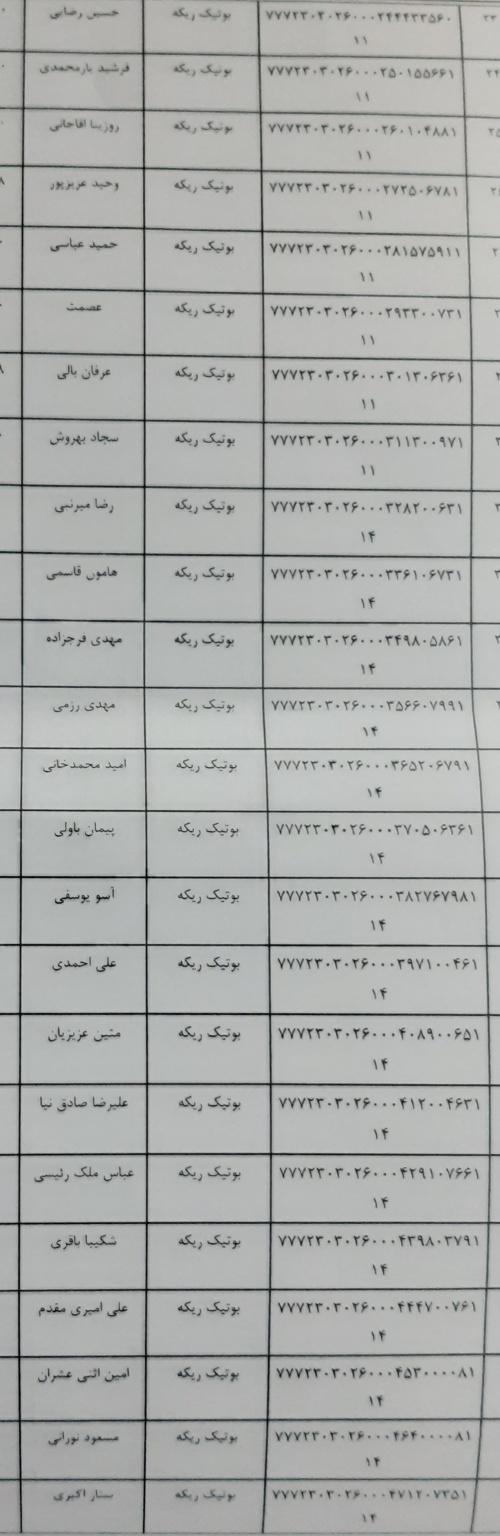 ۷۷۷۲۳۰۳۰۲۶۰۰۰۲۴۴۴۳۳۵۶۰ بوتیک ریکه حسین رضایی
۱۱
۲۴ ۷۷۷۲۳۰۳۰۲۶۰۰۰۲۵۰۱۵۵۶۶۱ بوتیک ریکه فرشید یارمحمدی
۱۱
۷۷۷۲۳۰۳۰۲۶۰۰۰۲۶۰۱۰۴۸۸۱ بوتیک ریکه روزبینا اقاجانی
۱۱
۷۷۷۲۳۰۳۰۲۶۰۰۰۲۷۲۵۰۶۷۸۱ بوتیک ریکه وحید عزیزپور
۱۱
۷۷۷۲۳۰۳۰۲۶۰۰۰۲۸۱۵۷۵۹۱۱ بوتیک ریکه حمید عباسی
۱۱
۷۷۷۲۳۰۳۰۲۶۰۰۰۲۹۳۳۰۰۷۳۱ بوتیک ریکه عصمت
۱۱
۷۷۷۲۳۰۳۰۲۶۰۰۰۳۰۱۳۰۶۳۶۱ بوتیک ریکه عرفان بالی
۱۱
۷۷۷۲۳۰۳۰۲۶۰۰۰۳۱۱۳۰۰۹۷۱ بوتیک ریکه سجاد بهروش
۱۱
۷۷۷۲۳۰۳۰۲۶۰۰۰۳۲۸۲۰۰۶۳۱ بوتیک ریکه رضا میرنبی
۱۴
۷۷۷۲۳۰۳۰۲۶۰۰۰۳۳۶۱۰۶۷۳۱ بوتیک ریکه هامون قاسمی
۱۴
۷۷۷۲۳۰۳۰۲۶۰۰۰۳۴۹۸۰۵۸۶۱ بوتیک ریکه مهدی فرجزاده
۱۴
۷۷۷۲۳۰۳۰۲۶۰۰۰۳۵۶۶۰۷۹۹۱ بوتیک ریکه مهدی رزمی
۱۴
۷۷۷۲۳۰۳۰۲۶۰۰۰۳۶۵۲۰۶۷۹۱ بوتیک ریکه امید محمدخانی
۱۴
۷۷۷۲۳۰۳۰۲۶۰۰۰۳۷۰۵۰۶۳۶۱ بوتیک ریکه پیمان باولی
۱۴
۷۷۷۲۳۰۳۰۲۶۰۰۰۳۸۲۷۶۷۹۸۱ بوتیک ریکه آسو یوسفی
۱۴
۷۷۷۲۳۰۳۰۲۶۰۰۰۳۹۷۱۰۰۴۶۱ بوتیک ریکه علی احمدی
۱۴
۷۷۷۲۳۰۳۰۲۶۰۰۰۴۰۸۹۰۰۶۵۱ بوتیک ریکه متین عزیزیان
۱۴
۷۷۷۲۳۰۳۰۲۶۰۰۰۴۱۲۰۰۴۶۳۱ بوتیک ریکه علیرضا صادق نیا
۱۴
۷۷۷۲۳۰۳۰۲۶۰۰۰۴۲۹۱۰۷۶۶۱ بوتیک ریکه عباس ملک رئیسی
۱۴
۷۷۷۲۳۰۳۰۲۶۰۰۰۴۳۹۸۰۳۷۹۱ بوتیک ریکه شکیبا باقری
۱۴
۷۷۷۲۳۰۳۰۲۶۰۰۰۴۴۴۷۰۰۷۶۱ بوتیک ریکه علی امیری مقدم
۱۴
۷۷۷۲۳۰۳۰۲۶۰۰۰۴۵۳۰۰۰۰۸۱ بوتیک ریکه امین اثنی عشران
۱۴
۷۷۷۲۳۰۳۰۲۶۰۰۰۴۶۴۰۰۰۰۸۱ بوتیک ریکه مسعود نورانی
۱۴
۷۷۷۲۳۰۳۰۲۶۰۰۰۴۷۱۲۰۷۳۵۱ بوتیک ریکه ستار اکبری
۱۴